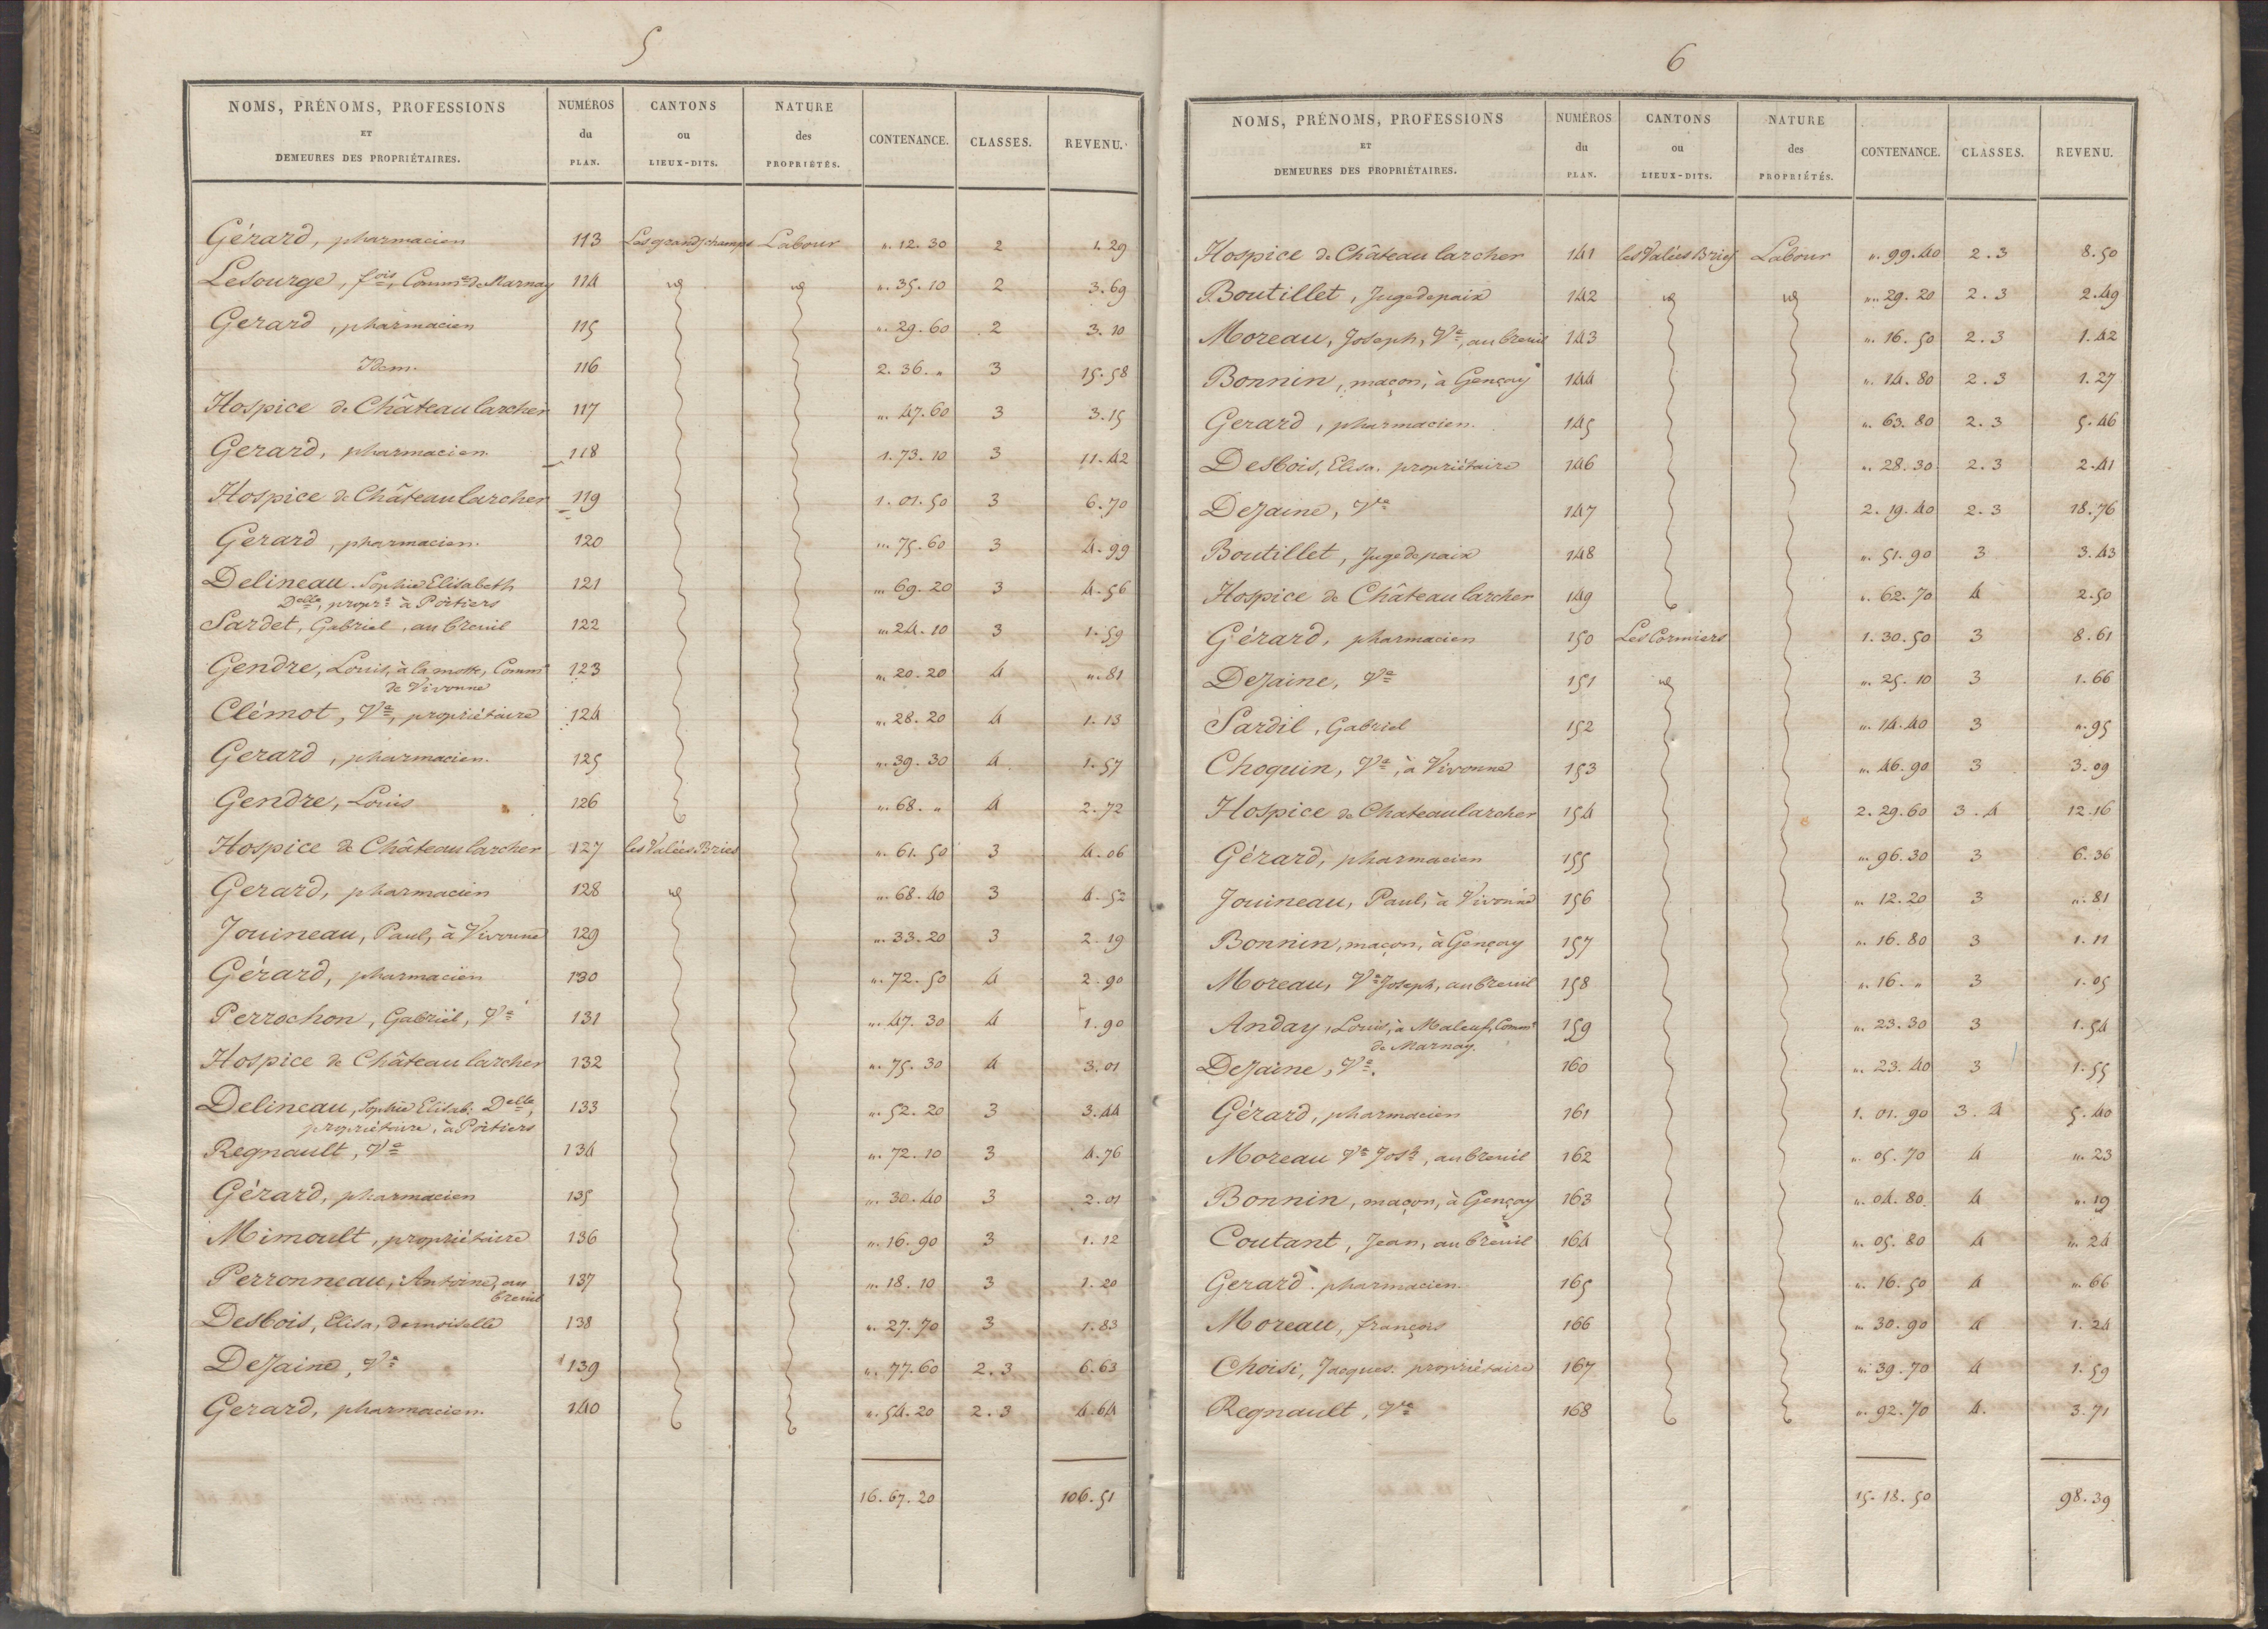 5
NOMS, PRÉNOMS, PROFESSIONS ET DEMEURES DES PROPRIÉTAIRES. NUMÉROS du PLAN. CANTONS ou LIEUX-DITS. NATURE des PROPRIÉTÉS. CONTENANCE. CLASSES. REVENU.
Gérard, pharmacien 113 Les grands champs Labour „. 12. 30 2 1. 29
Lesourge, fois, Comne de Marnay 114 id id „. 35. 10 2 3. 69
Gerard, pharmacien 115 „. 29. 60 2 3. 10
Idem. 116 2. 36. „ 3 15. 58
Hospice de Château larcher 117 „. 47. 60 3 3. 15
Gerard, pharmacien. 118 1. 73. 10 3 11. 42
Hospice de Château larcher 119 1. 01. 50 3 6. 70
Gerard, pharmacien. 120 „. 75. 60 3 4. 99
Delineau. Sophie Elisabeth 121 „. 69. 20 3 4. 56
Delle, propre à Poitiers
Sardet, Gabriel, au breuil 122 „. 24. 10 3 1. 59
Gendre, Louis, à la motte, Comm 123 „. 20. 20 4 „. 81
de Vivonne
Clémot, Ve, propriétaire 124 „. 28. 20 4 1. 13
Gerard, pharmacien. 125 „. 39. 30 4 1. 57
Gendre, Louis 126 „. 68. „ 4 2. 72
Hospice de Château larcher 127 les Valées Bries „. 61. 50 3 4. 06
Gerard, pharmacien 128 id „. 68. 40 3 4. 52
Jouineau, Paul, à Vivonne 129 „. 33. 20 3 2. 19
Gérard, pharmacien 130 „. 72. 50 4 2. 90
Perrochon, Gabriel, Ve 131 „. 47. 30 4 1. 90
Hospice de Château larcher 132 „. 75. 30 4 3. 01
Delineau, Sophie Elisab: Delle, 133 „. 52. 20 3 3. 44
propriétaire, à Poitiers
Regnault, Ve 134 „. 72. 10 3 4. 76
Gérard, pharmacien 135 „. 30. 40 3 2. 01
Mimoult, propriétaire 136 „. 16. 90 3 1. 12
Perronneau, Antoine, au 137 „. 18. 10 3 1. 20
breuil
Desbois, Elisa, demoiselle 138 „. 27. 70 3 1. 83
Dejaine, Ve 139 „. 77. 60 2. 3 6. 63
Gerard, pharmacien. 140 „. 54. 20 2. 3 4. 64
16. 67. 20 106. 51
6
NOMS, PRÉNOMS, PROFESSIONS ET DEMEURES DES PROPRIÉTAIRES. NUMÉROS du PLAN. CANTONS ou LIEUX-DITS. NATURE des PROPRIÉTÉS. CONTENANCE. CLASSES. REVENU.
Hospice de Château larcher 141 les Valées Bries Labour „. 99. 40 2. 3 8. 50
Boutillet, Juge de paix 142 id id „. 29. 20 2. 3 2. 49
Moreau, Joseph, Ve, au breuil 143 „. 16. 50 2. 3 1. 42
Bonnin, maçon, à Gençay 144 „. 14. 80 2. 3 1. 27
Gerard, pharmacien. 145 „. 63. 80 2. 3 5. 46
Desbois, Elisa. propriétaire 146 „. 28. 30 2. 3 2. 41
Dejaine, Ve 147 2. 19. 40 2. 3 18. 76
Boutillet, Juge de paix 148 „. 51. 90 3 3. 43
Hospice de Château larcher 149 „. 62. 70 4 2. 50
Gérard, pharmacien 150 Les Cormiers 1. 30. 50 3 8. 61
Dejaine, Ve 151 id „. 25. 10 3 1. 66
Sardil, Gabriel 152 „. 14. 40 3 „. 95
Choquin, Ve, à Vivonne 153 „. 46. 90 3 3. 09
Hospice de Chateau larcher 154 2. 29. 60 3. 4 12. 16
Gérard, pharmacien 155 „. 96. 30 3 6. 36
Jouineau, Paul, à Vivonne 156 „. 12. 20 3 „. 81
Bonnin, maçon, à Gençay 157 „. 16. 80 3 1. 11
Moreau, Ve Joseph, au breuil 158 „. 16. „ 3 1. 05
Anday, Louis, à Maleuf, Comm 159 „. 23. 30 3 1. 54
de Marnay.
Dejaine, Ve. 160 „. 23. 40 3 1. 55
Gérard, pharmacien 161 1. 01. 90 3. 4 5. 40
Moreau Ve Josh, au breuil 162 „. 05. 70 4 „. 23
Bonnin, maçon, à Gençay 163 „. 04. 80 4 „. 19
Coutant, Jean, au breuil 164 „. 05. 80 4 „. 24
Gerard. pharmacien 165 „. 16. 50 4 „. 66
Moreau, françois 166 „. 30. 90 4 1. 24
Choisi, Jacques. propriétaire 167 „. 39. 70 4 1. 59
Regnault, Ve 168 „. 92. 70 4. 3. 71
15. 18. 50 98. 39